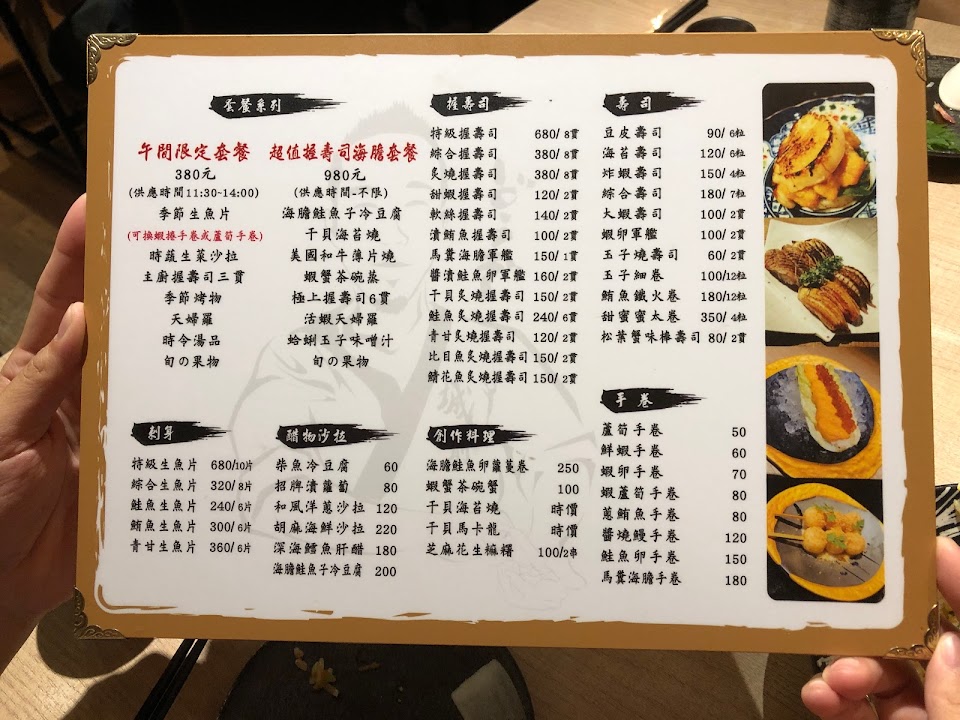 套餐系列
午間限定套餐
380元
(供應時間11:30~14:00)
季節生魚片
(可換蝦捲手卷或蘆筍手卷)
時蔬生菜沙拉
主廚握壽司三貫
季節烤物
天婦羅
時令湯品
旬の果物
超值握壽司海膽套餐
980元
(供應時間-不限)
海膽鮭魚子冷豆腐
干貝海苔燒
美國和牛薄片燒
蝦蟹茶碗蒸
極上握壽司6貫
活蝦天婦羅
蛤蜊玉子味噌汁
旬の果物
握壽司
特級握壽司 680/8貫
綜合握壽司 380/8貫
炙燒握壽司 380/8貫
甜蝦握壽司 120/2貫
軟絲握壽司 140/2貫
漬鮪魚握壽司 100/2貫
馬糞海膽軍艦 150/1貫
醬漬鮭魚卵軍艦 160/2貫
干貝炙燒握壽司 150/2貫
鮭魚炙燒握壽司 240/6貫
青甘炙燒握壽司 120/2貫
比目魚炙燒握壽司 150/2貫
鯖花魚炙燒握壽司 150/2貫
壽司
豆皮壽司 90/6粒
海苔壽司 120/6粒
炸蝦壽司 150/4粒
綜合壽司 180/7粒
大蝦壽司 100/2貫
蝦卵軍艦 100/2貫
玉子燒壽司 60/2貫
玉子細卷 100/12粒
鮪魚鐵火卷 180/12粒
甜蜜蜜太卷 350/4粒
松葉蟹味棒壽司 80/2貫
刺身
特級生魚片 680/10片
綜合生魚片 320/8片
鮭魚生魚片 240/6片
鮪魚生魚片 300/6片
青甘生魚片 360/6片
醋物沙拉
柴魚冷豆腐 60
招牌漬蘿蔔 80
和風洋蔥沙拉 120
胡麻海鮮沙拉 220
深海鱈魚肝醋 180
海膽鮭魚子冷豆腐 200
創作料理
海膽鮭魚卵蘿蔓卷 250
蝦蟹茶碗蟹 100
干貝海苔燒 時價
干貝馬卡龍 時價
芝麻花生麻糬 100/2串
手卷
蘆筍手卷 50
鮮蝦手卷 60
蝦卵手卷 70
蝦蘆筍手卷 80
蔥鮪魚手卷 80
醬燒鰻手卷 120
鮭魚卵手卷 150
馬糞海膽手卷 180